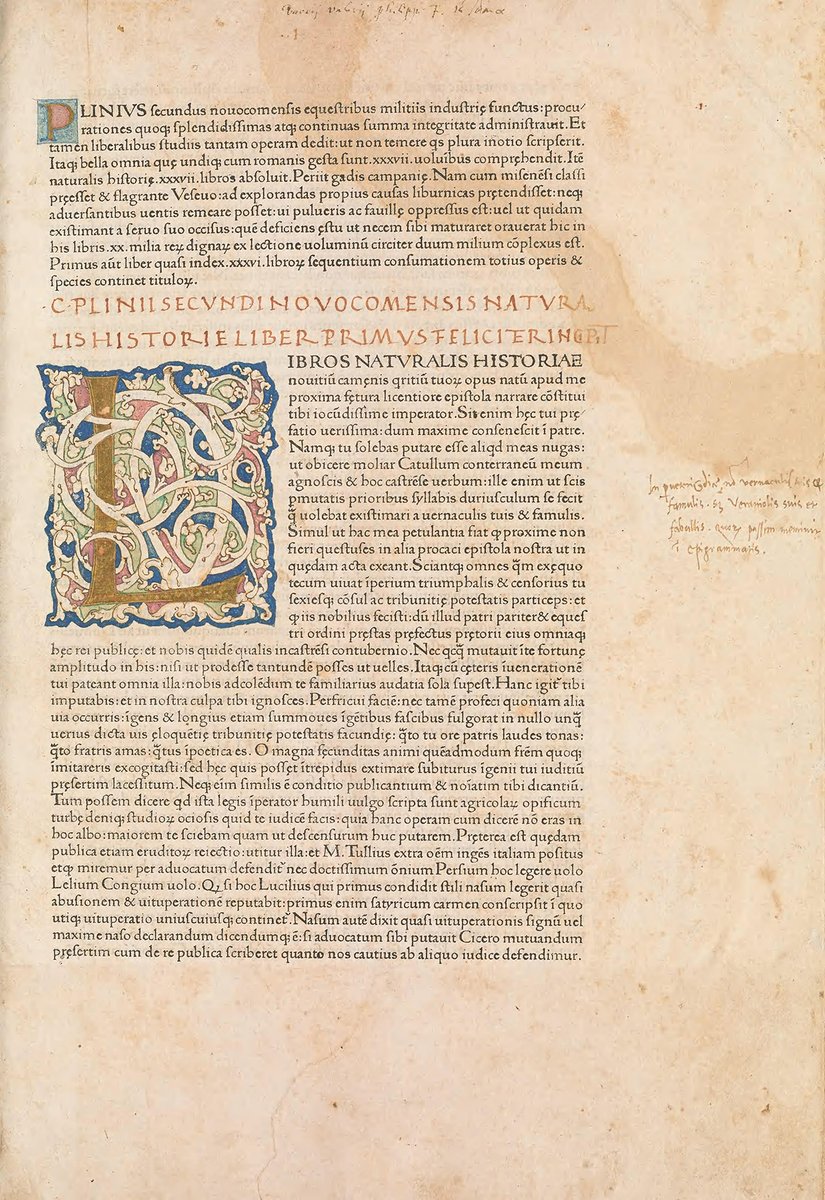 PLINIVS secundus nouocomensis equestribus militiis industrię functus:procu/
rationes quoq; splendidissimas atq; continuas summa integritate administrauit.Et
tamen liberalibus studiis tantam operam dedit:ut non temere qs plura inotio scripserit.
Itaq; bella omnia quę undiq; cum romanis gesta sunt.xxxvii.uoluibus comprehendit.Itē
naturalis historię.xxxvii.libros absoluit.Periit gadis campanię.Nam cum misenēsi classi
pręesset & flagrante Veseuo:ad explorandas propius causas liburnicas prętendisset:neq;
aduersantibus uentis remeare posset:ui pulueris ac fauillę oppressus est:uel ut quidam
existimant a seruo suo occisus:quē deficiens ęstu ut necem sibi maturaret orauerat hic in
his libris.xx.milia reꝝ dignaꝝ ex lectione uoluminū circiter duum milium cōplexus est.
Primus aūt liber quasi index.xxxvi.libroꝝ sequentium consumationem totius operis &
species continet tituloꝝ.
C·PLINII SECVNDI NOVOCOMENSIS NATVRA
LIS HISTORIE LIBER PRIMVS FELICITER INCPT
LIBROS NATVRALIS HISTORIAE
nouitiū camęnis qritiū tuoꝝ opus natū apud me
proxima fętura licentiore epistola narrare cōstitui
tibi iocūdissime imperator.Sit enim hęc tui prę/
fatio uerissima:dum maxime consenescit ī patre.
Namq; tu solebas putare esse aliqd meas nugas:
ut obicere moliar Catullum conterraneū meum
agnoscis & hoc castrēse uerbum:ille enim ut scis
pmutatis prioribus syllabis duriusculum se fecit
q̄ uolebat existimari a uernaculis tuis & famulis.
Simul ut hac mea petulantia fiat qp proxime non
fieri questuses in alia procaci epistola nostra ut in
quędam acta exeant.Sciantq; omnes q̄m exęquo
tecum uiuat īperium triumphalis & censorius tu
sexiesq; cōsul ac tribunitię potestatis particeps:et
qp iis nobilius fecisti:dū illud patri pariter& eques
tri ordini pręstas pręfectus pretorii eius omniaq;
hęc rei publicę:et nobis quidē qualis incastrēsi contubernio.Nec qcq̄ mutauit īte fortunę
amplitudo in his:nisi ut prodesse tantundē posses ut uelles.Itaq; cū cęteris īuenerationē
tui pateant omnia illa:nobis adcolēdum te familiarius audatia sola supest.Hanc igit᷑ tibi
imputabis:et in nostra culpa tibi ignosces.Perfricui faciē:nec tamē profeci quoniam alia
uia occurris:īgens & longius etiam summoues īgētibus fascibus fulgorat in nullo unq̄
uerius dicta uis ęloquētię tribunitię potestatis facundię:q̄to tu ore patris laudes tonas:
q̄to fratris amas:q̄tus īpoetica es.O magna fęcunditas animi quēadmodum frēm quoq;
īmitareris excogitasti:sed hęc quis posset ītrepidus extimare subiturus īgenii tui iuditiū
pręsertim lacessitum.Neq; eīm similis ē conditio publicantium & noīatim tibi dicantiū.
Tum possem dicere qd ista legis īperator humili uulgo scripta sunt agricolaꝝ opificum
turbę deniq; studioꝝ ociosis quid te iudicē facis:quia hanc operam cum dicerē nō eras in
hoc albo:maiorem te sciebam quam ut descensurum huc putarem.Pręterea est quędam
publica etiam eruditoꝝ reiectio:utitur illa:et M.Tullius extra oēm ingēs italiam positus
etqp miremur per aduocatum defendit᷑ nec doctissimum ōnium Persium hoc legere uolo
Lelium Congium uolo.Qꝫ si hoc Lucilius qui primus condidit stili nasum legerit quasi
abusionem & uituperationē reputabit:primus enim satyricum carmen conscripsit ī quo
utiq; uituperatio uniuscuiusq; continet᷑.Nasum autē dixit quasi uituperationis signū uel
maxime naso declarandum dicendumq; ē:si aduocatum sibi putauit Cicero mutuandum
pręsertim cum de re publica scriberet quanto nos cautius ab aliquo iudice defendimur.
vernaculis tuis et
famulis. Veraniolis suis et
fabullis. quoꝝ passim meminit
ī epigrammatis.